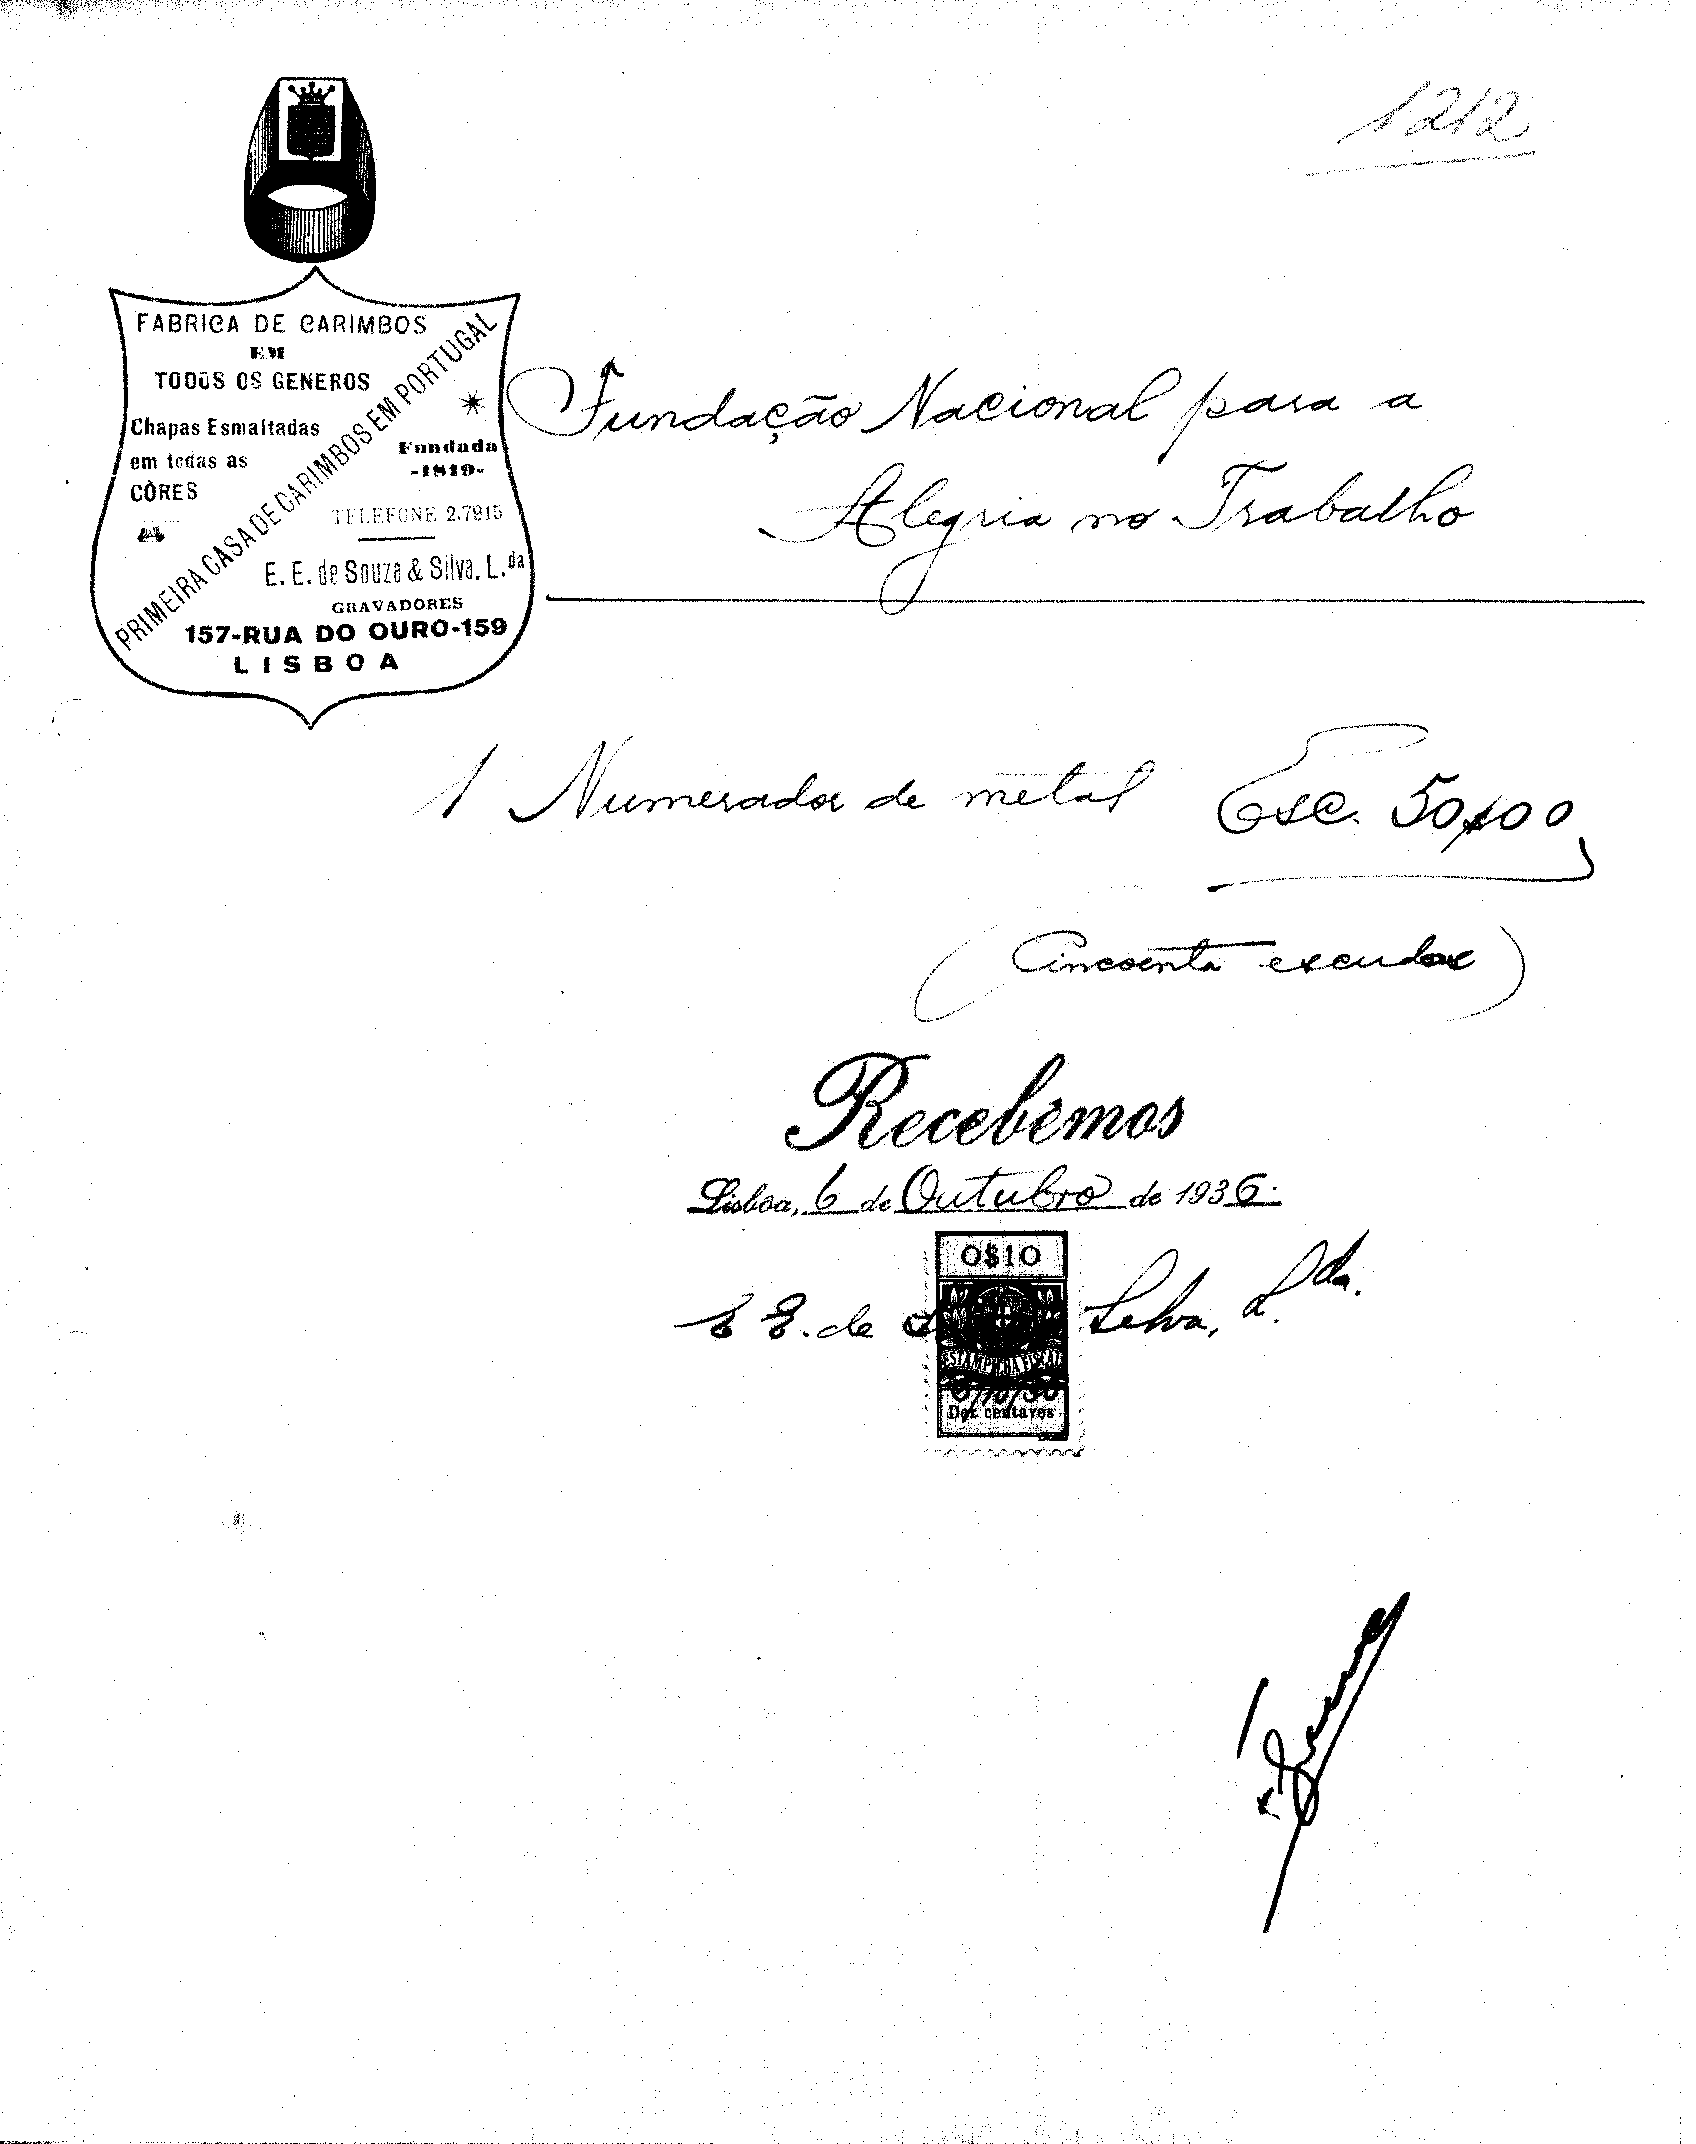 1212
FABRICA DE CARIMBOS
EM
TODOS OS GENEROS
Chapas Esmaltadas
em todas as
CÔRES
PRIMEIRA CASA DE CARIMBOS EM PORTUGAL
Fundada
-1819-
TELEFONE 2.7915
E. E. de Souza & Silva. L.da
GRAVADORES
157-RUA DO OURO-159
LISBOA
Fundação Nacional para a
Alegria no Trabalho
1 Numerador de metal Esc. 50$00
(Cincoenta escudos)
Recebemos
Lisboa, 6 de Outubro de 1936.
0$10
E E. de Silva, L.da.
ESTAMPILHA FISCAL
6/10/36
Dez centavos